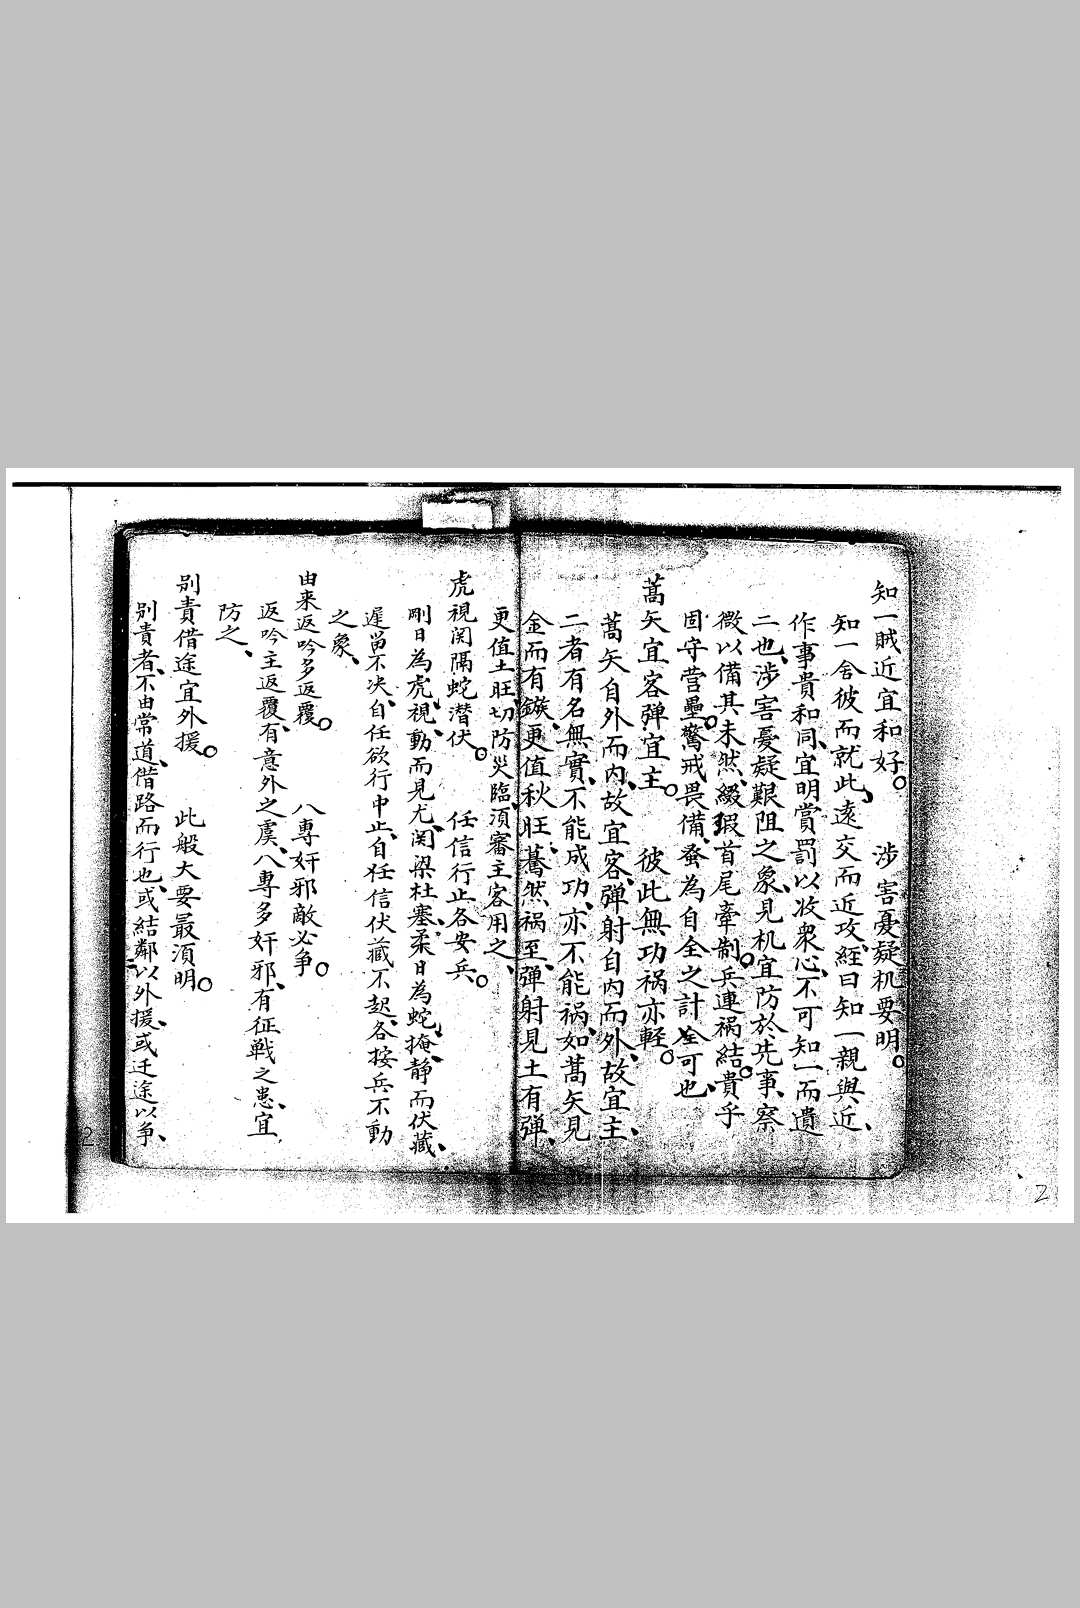 知一賊近宜和好。　涉害憂疑机要明。
知一舍彼而就此、遠交而近攻、經曰知一親與近、
作事貴和同、宜明賞罰以收衆心、不可知一而遺
二也、涉害憂疑艱阻之象、見机宜防於先事、察
微以備其未然、綴瑕首尾牽制。兵連祸結。貴乎
固守营壘。驚戒畏備、為自全之計全可也、
蒿矢宜客弹宜主。　彼此無功祸亦輕。
蒿矢自外而内、故宜客、弹射自内而外、故宜主、
二者有名無實、不能成功、亦不能祸、如蒿矢見
金而有鏃、更值秋旺、驀然祸至、弹射見土有弹、
更值土旺、切防災臨、須審主客用之、
虎視関隔蛇潜伏。　任信行止各安兵。
剛日為虎視、動而見尤、関梁杜塞、柔日為蛇、掩、静而伏藏、
遲畄不决、自任欲行中止、自任信伏藏不起、各按兵不動
之象、
由来返吟多返覆。　八專奸邪敵必争。
返吟主返覆、有意外之虞、八專多奸邪、有征戰之患、宜
防之、
别責借途宜外援。　此般大要最須明。
别責者、不由常道、借路而行也、或結鄰以外援、或迂途以争、
2
2